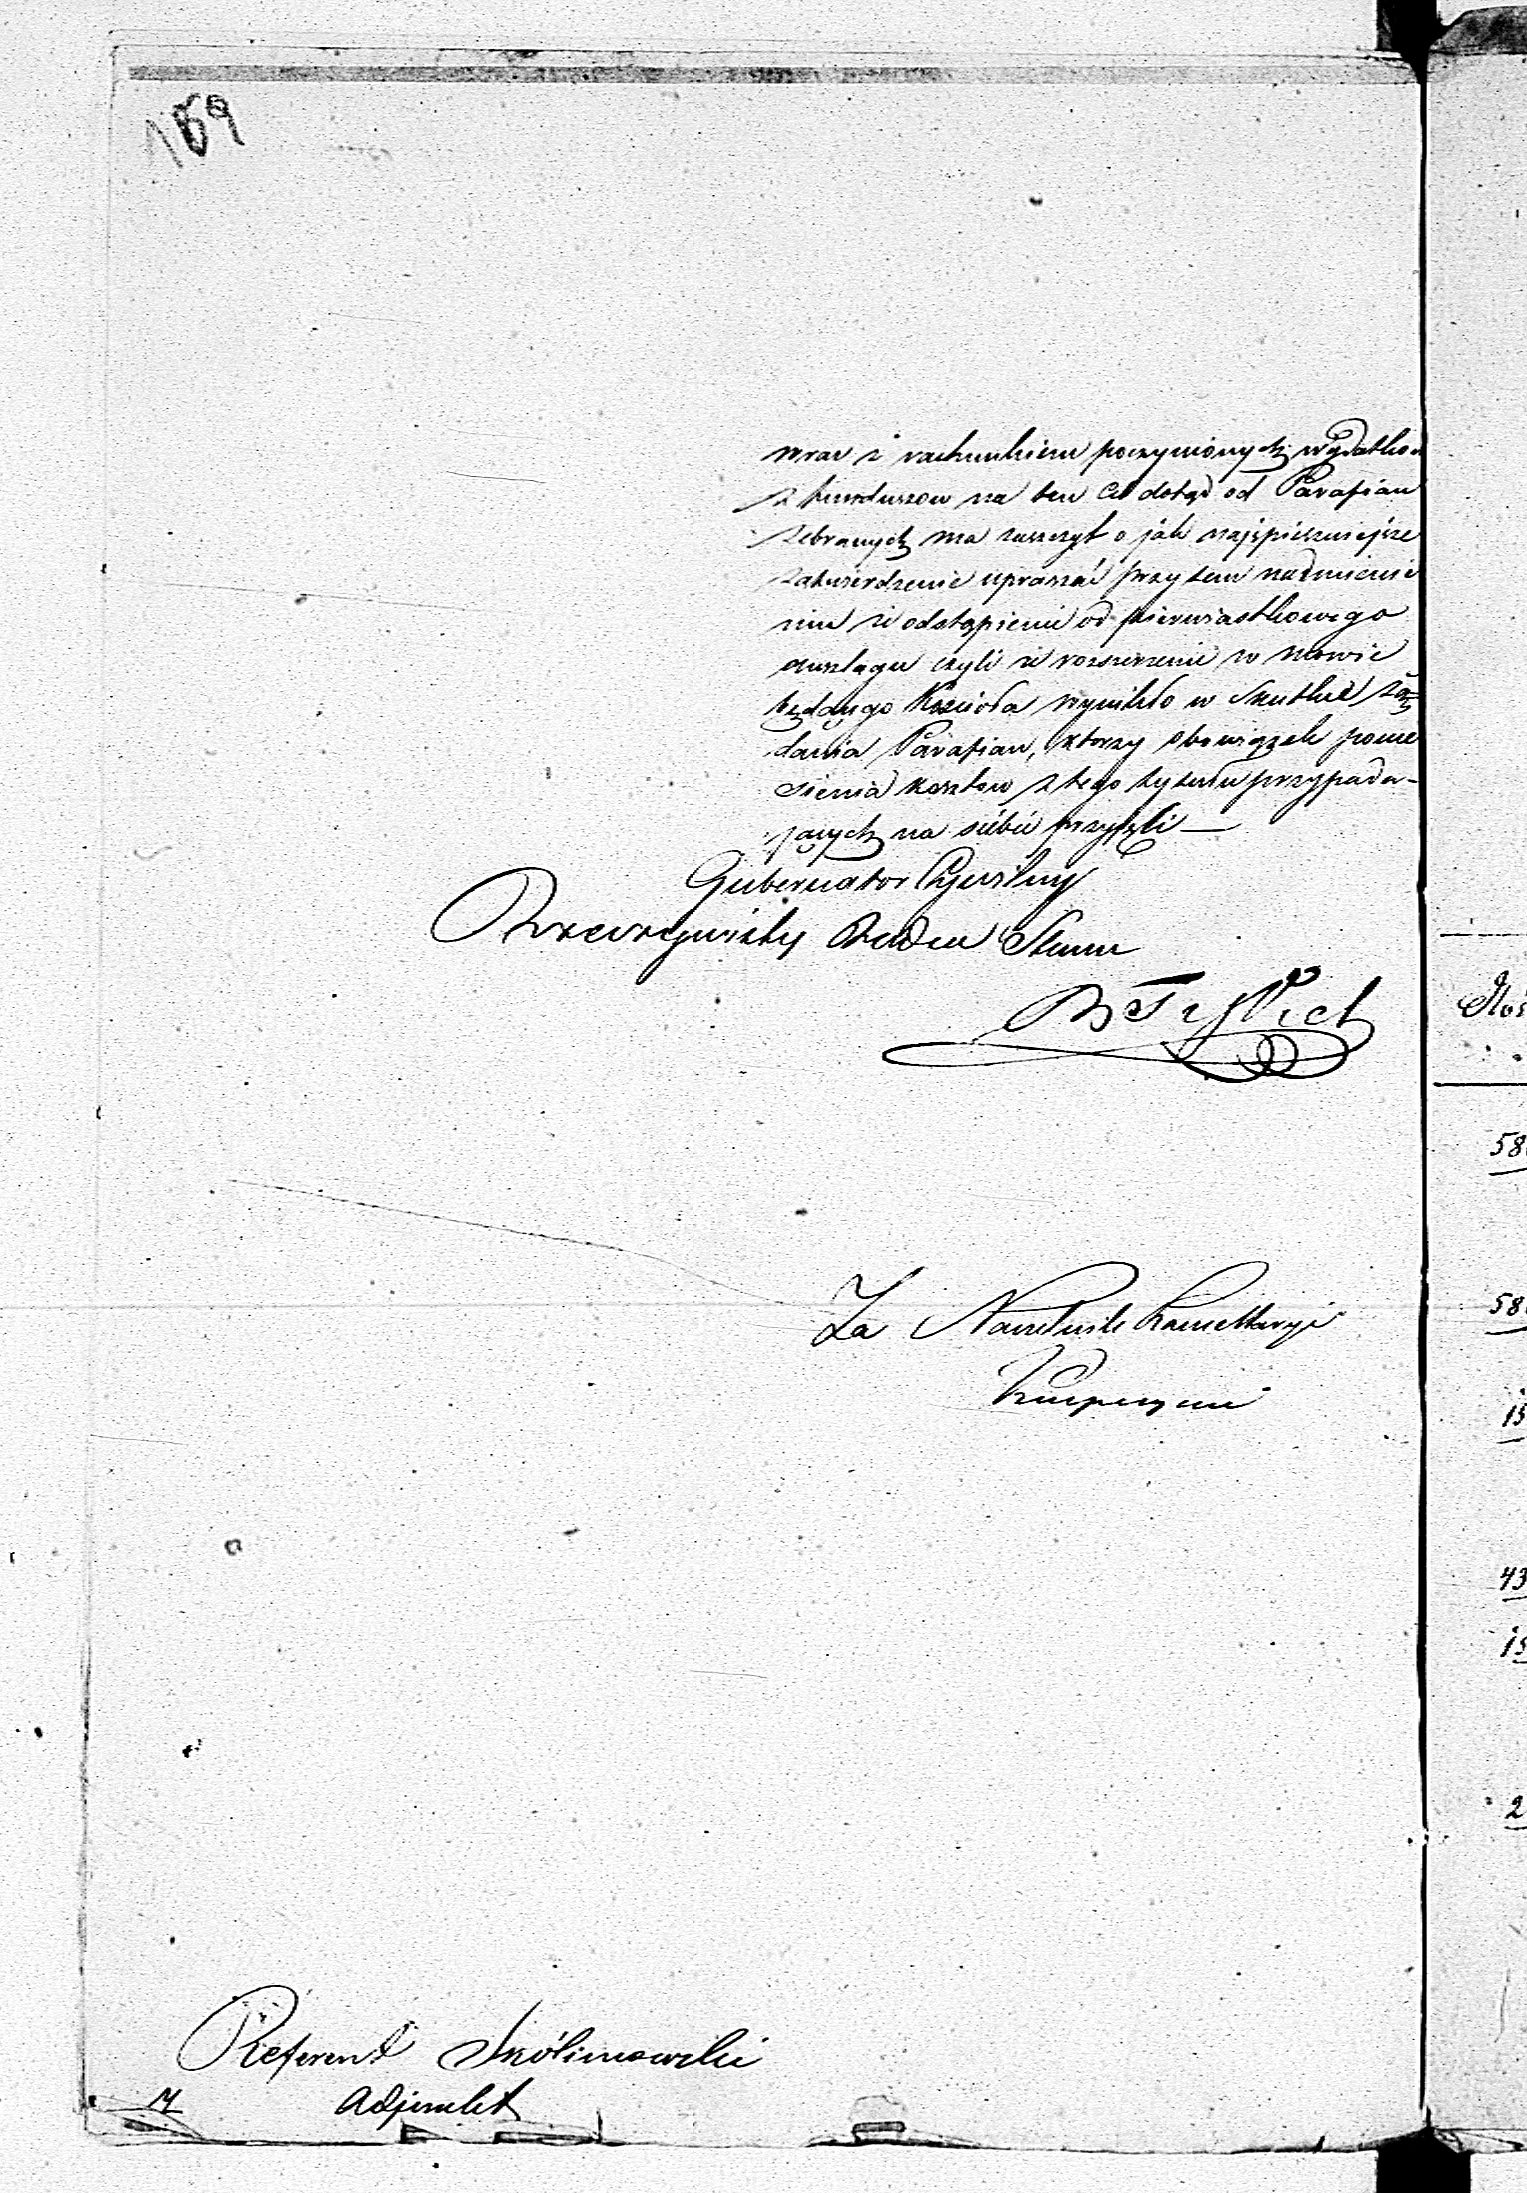 169
wraz z rachunkiem poczynionych wydatków
z funduszow na ten cel dotąd od Parafian
zebranych ma zaszczyt o jak najspieszniejsze
zatwierdzenie upraszać przy tem nadmienie
niu że odstąpienie od pierwiastkowego
anszlagu czyli że rozszerzenie w mowie
będącego Kościoła wynikło w skutku żą=
dania Parafian, którzy obowiązek ponie
sienia kosztow z tego tytułu przypada-
jących na siebie przyjęli —
Gubernator Cywilny
Rzeczywisty Radca Stanu
Za Naczelnik Kancellaryi
Referent Skólimowski
Adjunkt
58
58
15
43
15
2